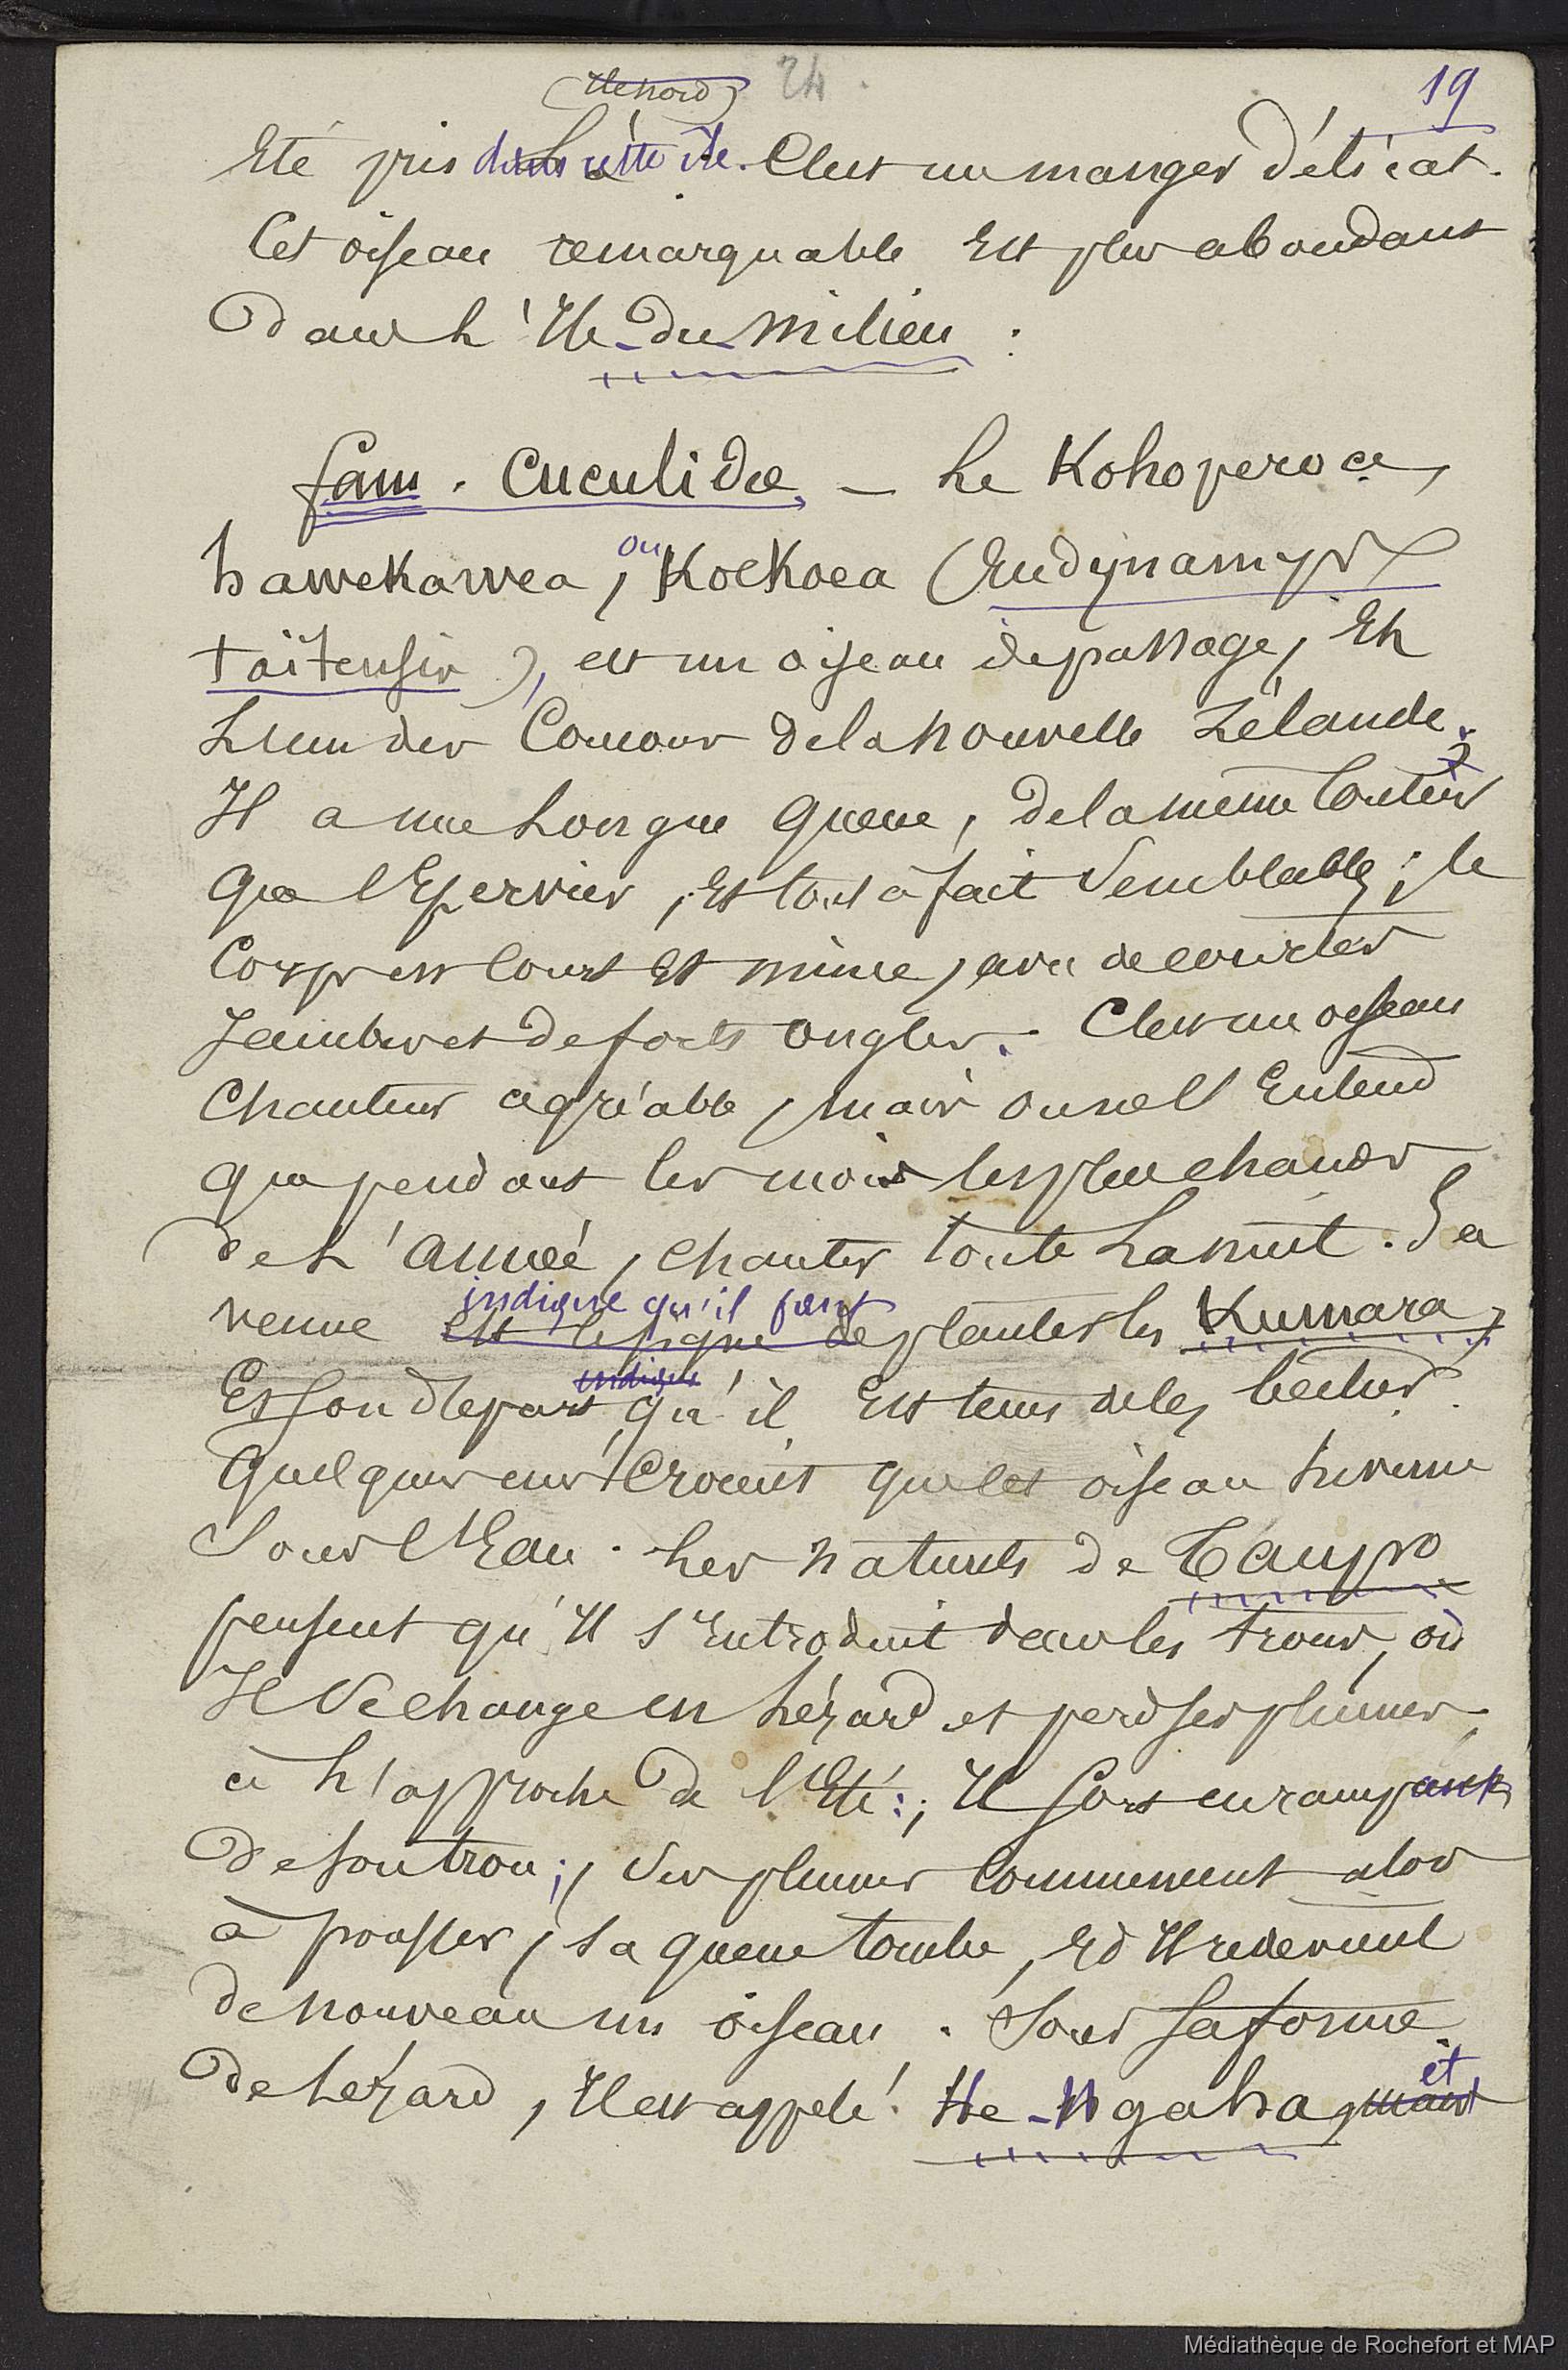 24. 19
(Ile nord)
Eté pris dans cette île. C'est un manger délicat.
Cet oiseau remarquable Est plus abondant
dans L'Ile-du-Milieu :
fam. Cuculidœ, — Le Kohoperoa,
hawekawea, ou Koekoea (Eudynamys
taïtensis), est un oiseau de passage, Et
L'un des Coucous de la Nouvelle Zélande.
Il a une Longue Queue, de la même Couleur
que l'Epervier, Est tout à fait Semblable ; le
Corps est Court Et mince, avec de courtes
Jambes et de forts ongles. C'est un oiseau
Chanteur agréable, mais on ne l'Entend
que pendant les mois les plus chauds
de L'année, chanter toute La nuit. Sa
indique qu'il faut
venue est le signe de planter les Kumara,
indique
Et son départ, qu'il Est tems de les bêcher.
Quelques uns Croient que cet oiseau hiverne
Sous l'Eau. Les naturels de Taupo
pensent qu'Il s'Introduit dans les trous, où
Il Se change en Lézard et perd ses plumes,
à L'approche de l'Eté : ; Il sort en rampant,
de son trou ; , Ses plumes Commencent alors
à pousser, sa queue tombe, Et Il redevient
de nouveau un oiseau. Sous sa forme
et
de Lézard, Il est appelé : He-Ngaha, mais
Médiathèque de Rochefort et MAP